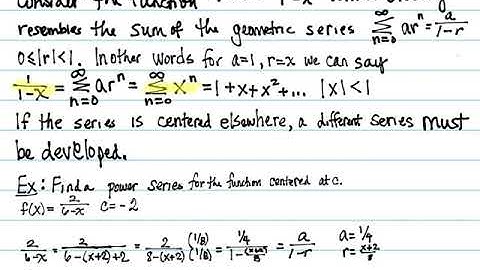 resembles the sum of the geometric series ∞Σn=0 ar^n = a/(1-r)
0≤|r|<1. In other words for a=1, r=x we can say
1/(1-x) = ∞Σn=0 ar^n = ∞Σn=0 x^n = 1+x+x²+... |x|<1
If the series is centered elsewhere, a different series must
be developed.
Ex: Find a power series for the function centered at c.
f(x) = 2/(6-x) c=-2
2/(6-x) = 2/(6-(x+2)+2) = 2/(8-(x+2)) (1/8)/(1/8) = (1/4)/(1-(x+2)/8) = a/(1-r) a=1/4 r=(x+2)/8